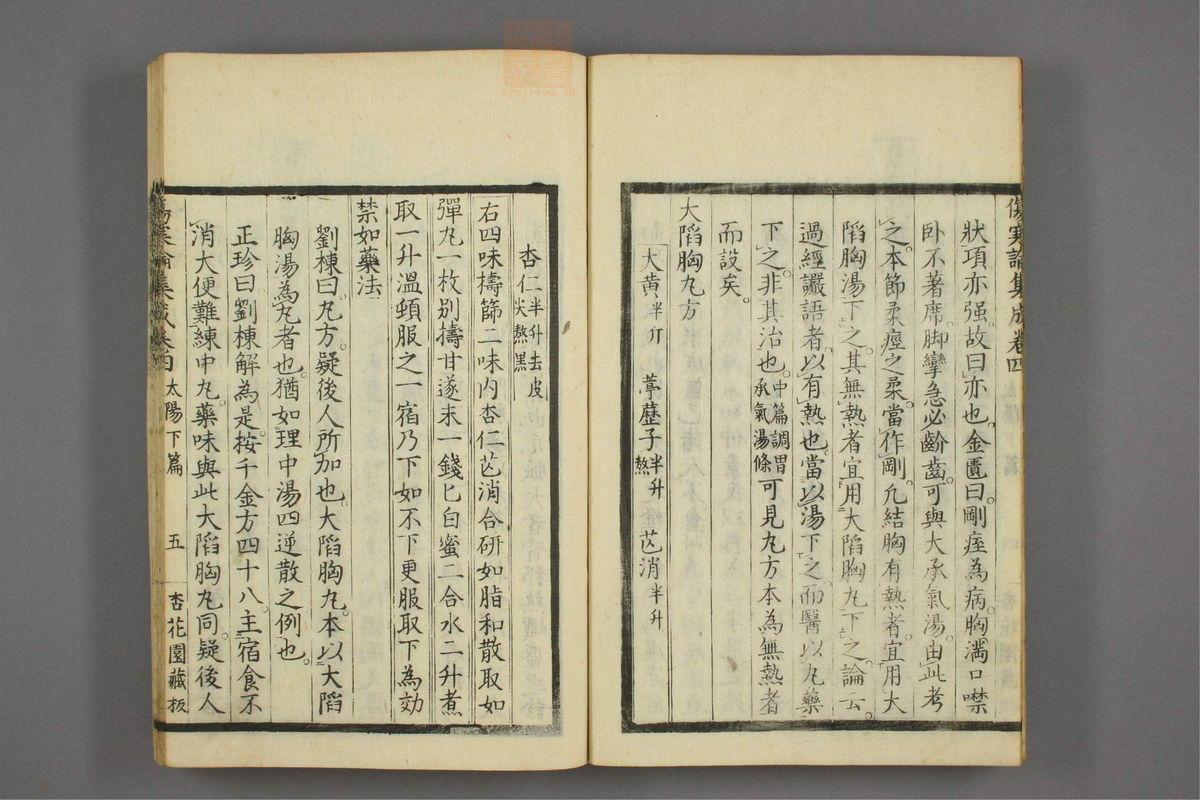 傷寒論集成卷四
狀項亦强。故曰亦也。金匱曰。剛痓為病。胸滿口噤
卧不著席。脚攣急必齘齒。可與大承氣湯。由此考
之。本節柔痙之柔。當作剛。凡結胸有熱者。宜用大
陷胸湯下之。其無熱者宜用大陷胸丸下之。論云。
過經讝語者。以有熱也。當以湯下之。而醫以丸藥
下之。非其治也。中篇調胃承氣湯條可見丸方本為無熱者
而設矣。
大陷胸丸方
大黃半斤 葶藶子半升熬 芒消半升
杏仁半升去皮尖熬黑
右四味擣篩二味內杏仁芒消合研如脂和散取如
彈丸一枚別擣甘遂末一錢匕白蜜二合水二升煮
取一升溫頓服之一宿乃下如不下更服取下為効
禁如藥法
劉棟曰。丸方。疑後人所加也。大陷胸丸。本以大陷
胸湯為丸者也。猶如理中湯四逆散之例也。
正珍曰。劉棟解為是。按千金方四十八。主宿食不
消大便難練中丸。藥味與此大陷胸丸同。疑後人
太陽下篇 五 杏花園藏板